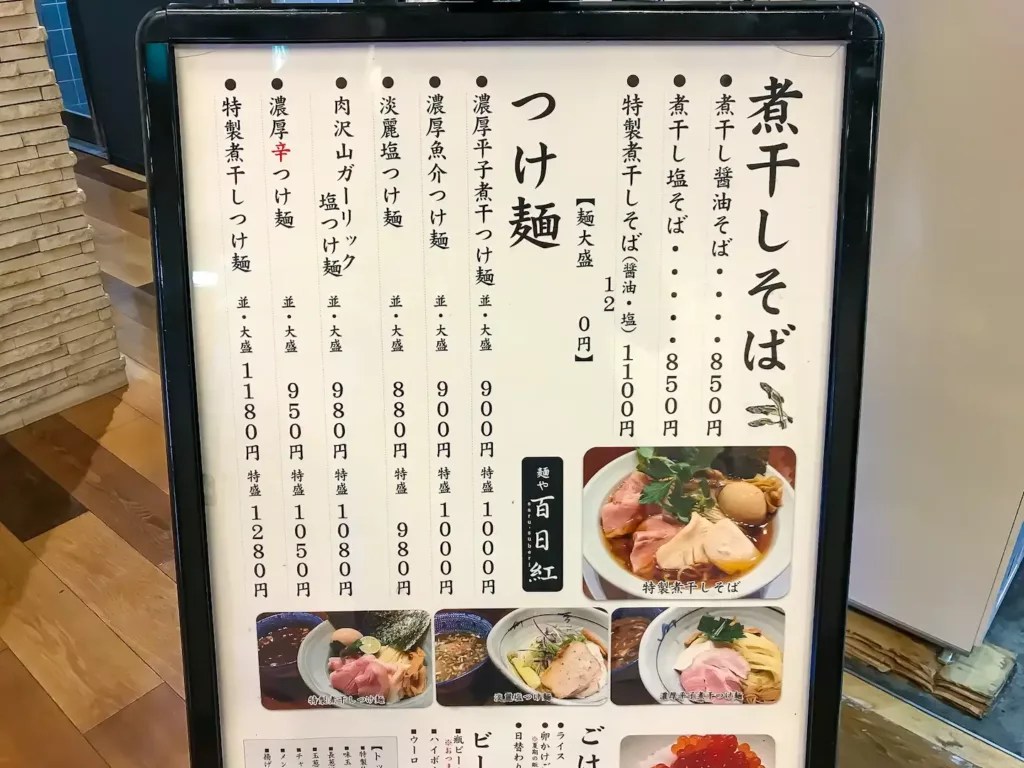 煮干しそば
●煮干し醤油そば・・・・850円
●煮干し塩そば・・・・・850円
●特製煮干しそば(醤油・塩)1100円
12
【麺大盛 0円】
つけ麺
●濃厚平子煮干つけ麺 並・大盛 900円 特盛 1000円
●濃厚魚介つけ麺 並・大盛 900円 特盛 1000円
●淡麗塩つけ麺 並・大盛 880円 特盛 980円
●肉沢山ガーリック
塩つけ麺 並・大盛 980円 特盛 1080円
●濃厚辛つけ麺 並・大盛 950円 特盛 1050円
●特製煮干しつけ麺 並・大盛 1180円 特盛 1280円
麺や 百日紅
saru-suberi
特製煮干しそば
特製煮干しつけ麺
淡麗塩つけ麺
濃厚平子煮干つけ麺
ごは
●ライス
●卵かけご
●日替わり
ビー
■瓶ビー
※おつま
■ハイボ
■ウーロ
【トッ
特製
味玉
長葱
玉葱
チャ
メン
揚げ